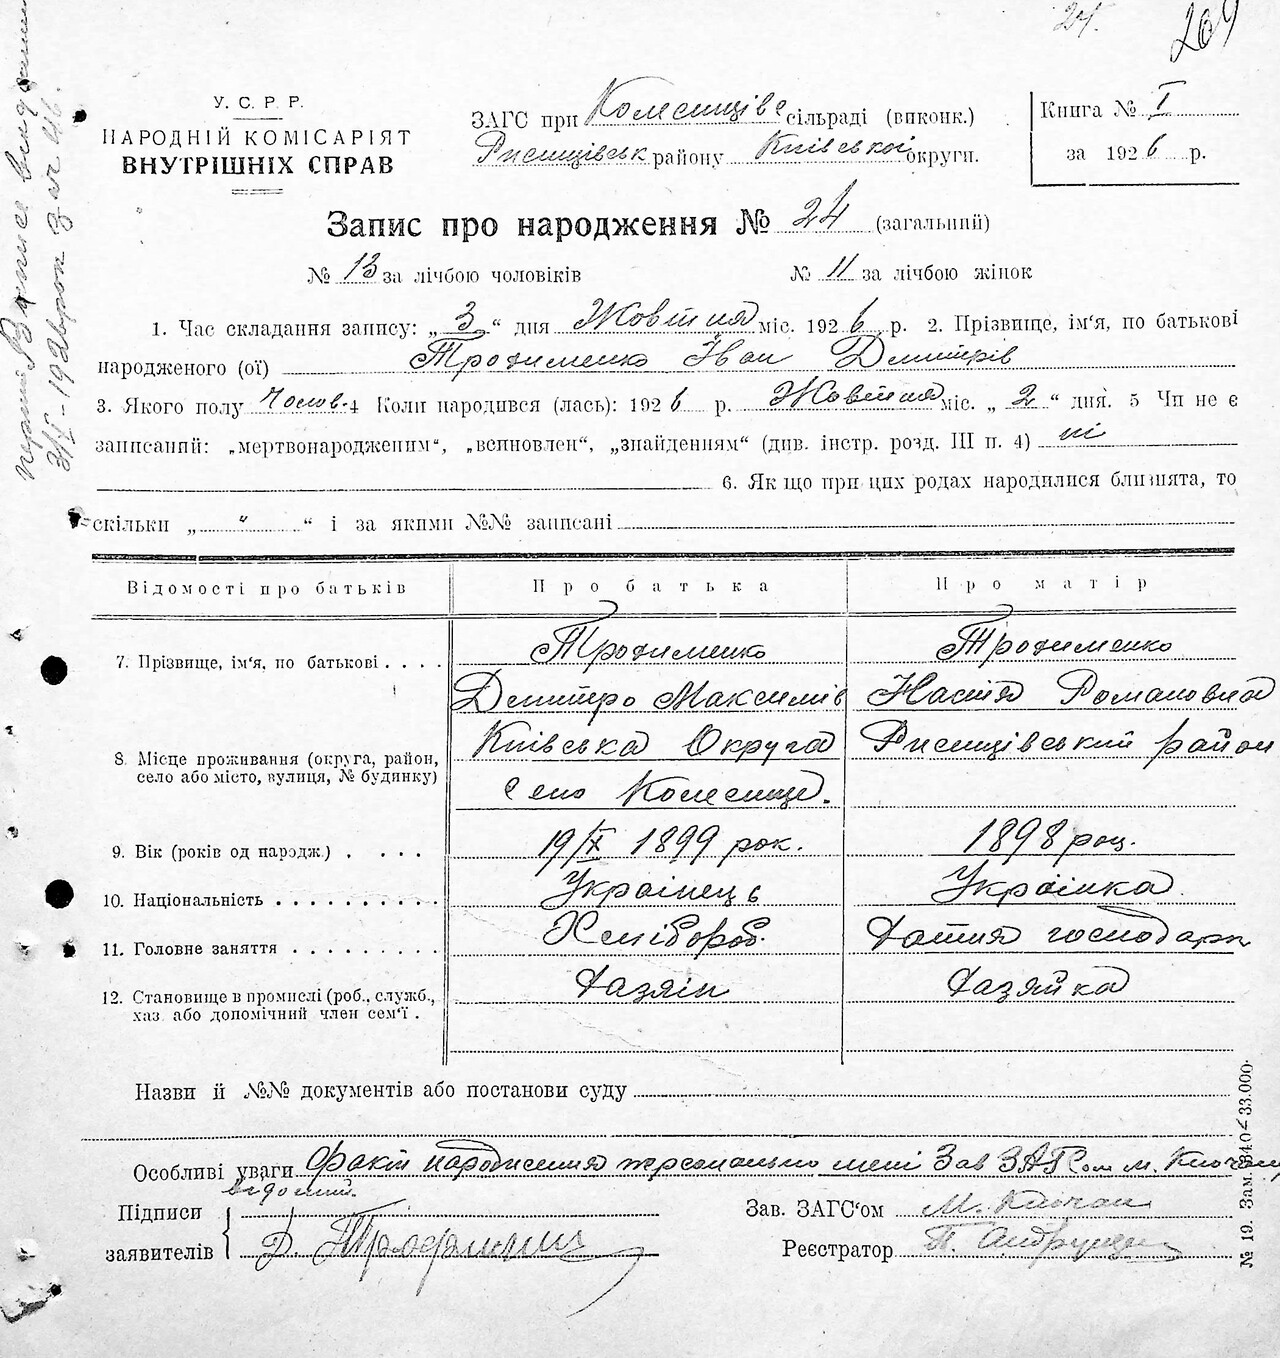 24.
209
У. С. Р. Р.
НАРОДНІЙ КОМІСАРІЯТ
ВНУТРІШНІХ СПРАВ
ЗАГС при Колесищівс сільраді (виконк.)
Ржищівськ району Київської округи.
Книга № I
за 1926 р.
Запис про народження № 24 (загальний)
№ 13 за лічбою чоловіків № 11 за лічбою жінок
1. Час складання запису: „3“ дня Жовтня міс. 1926 р. 2. Прізвище, ім‘я, по батькові
народженого (ої) Трохименко Іван Дмитрів
3. Якого полу Чолов. 4 Коли народився (лась): 1926 р. Жовтня міс. „2“ дня. 5 Чи не є
записаний: „мертвонародженим“, „всиновлен“, „знайденням“ (див. інстр. розд. III п. 4) ні
6. Як що при цих родах народилися близнята, то
скільки „ “ і за якими №№ записані
Відомості про батьків Про батька Про матір
7. Прізвище, ім‘я, по батькові . . . . Трохименко Трохименко
Дмитро Максимів Настя Романовна
8. Місце проживання (округа, район, Київська Округа Ржищівський район
село або місто, вулиця, № будинку) Село Колесище.
9. Вік (років од народж.) . . . . 19/X 1899 рок. 1898 роц.
10. Національність . . . . . . . . . . Українець Українка
11. Головне заняття . . . . . . . . . Хлібороб. Хатня господарк
12. Становище в промислі (роб., служб., Хазяїн Хазяйка
хаз. або допомічний член сем‘ї .
Назви й №№ документів або постанови суду
Особливі уваги Факт народження персонально мені Зав ЗАГСом М.
відомий.
Підписи
заявителів Д. Трофимен
Зав. ЗАГС‘ом М.
Реєстратор П.
№ 19. Зам. 33.000.